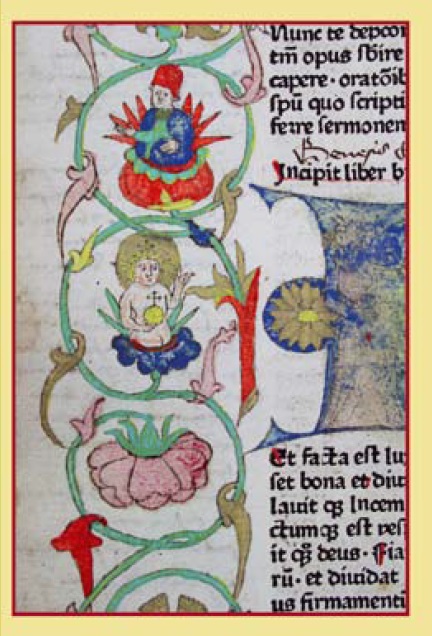 Nunc te depcor
tm̄ opus ſbire
capere· oratōib
ſpū quo ſcripti
ferre ſermonen
Genesis
Incipit liber b
Et facta eſt lu
ſet bona et diu
lauit qꝫ lucem
ctumqꝫ eſt veſ
it qꝫ deus· Fia
rū· et diuidat
us firmamenti